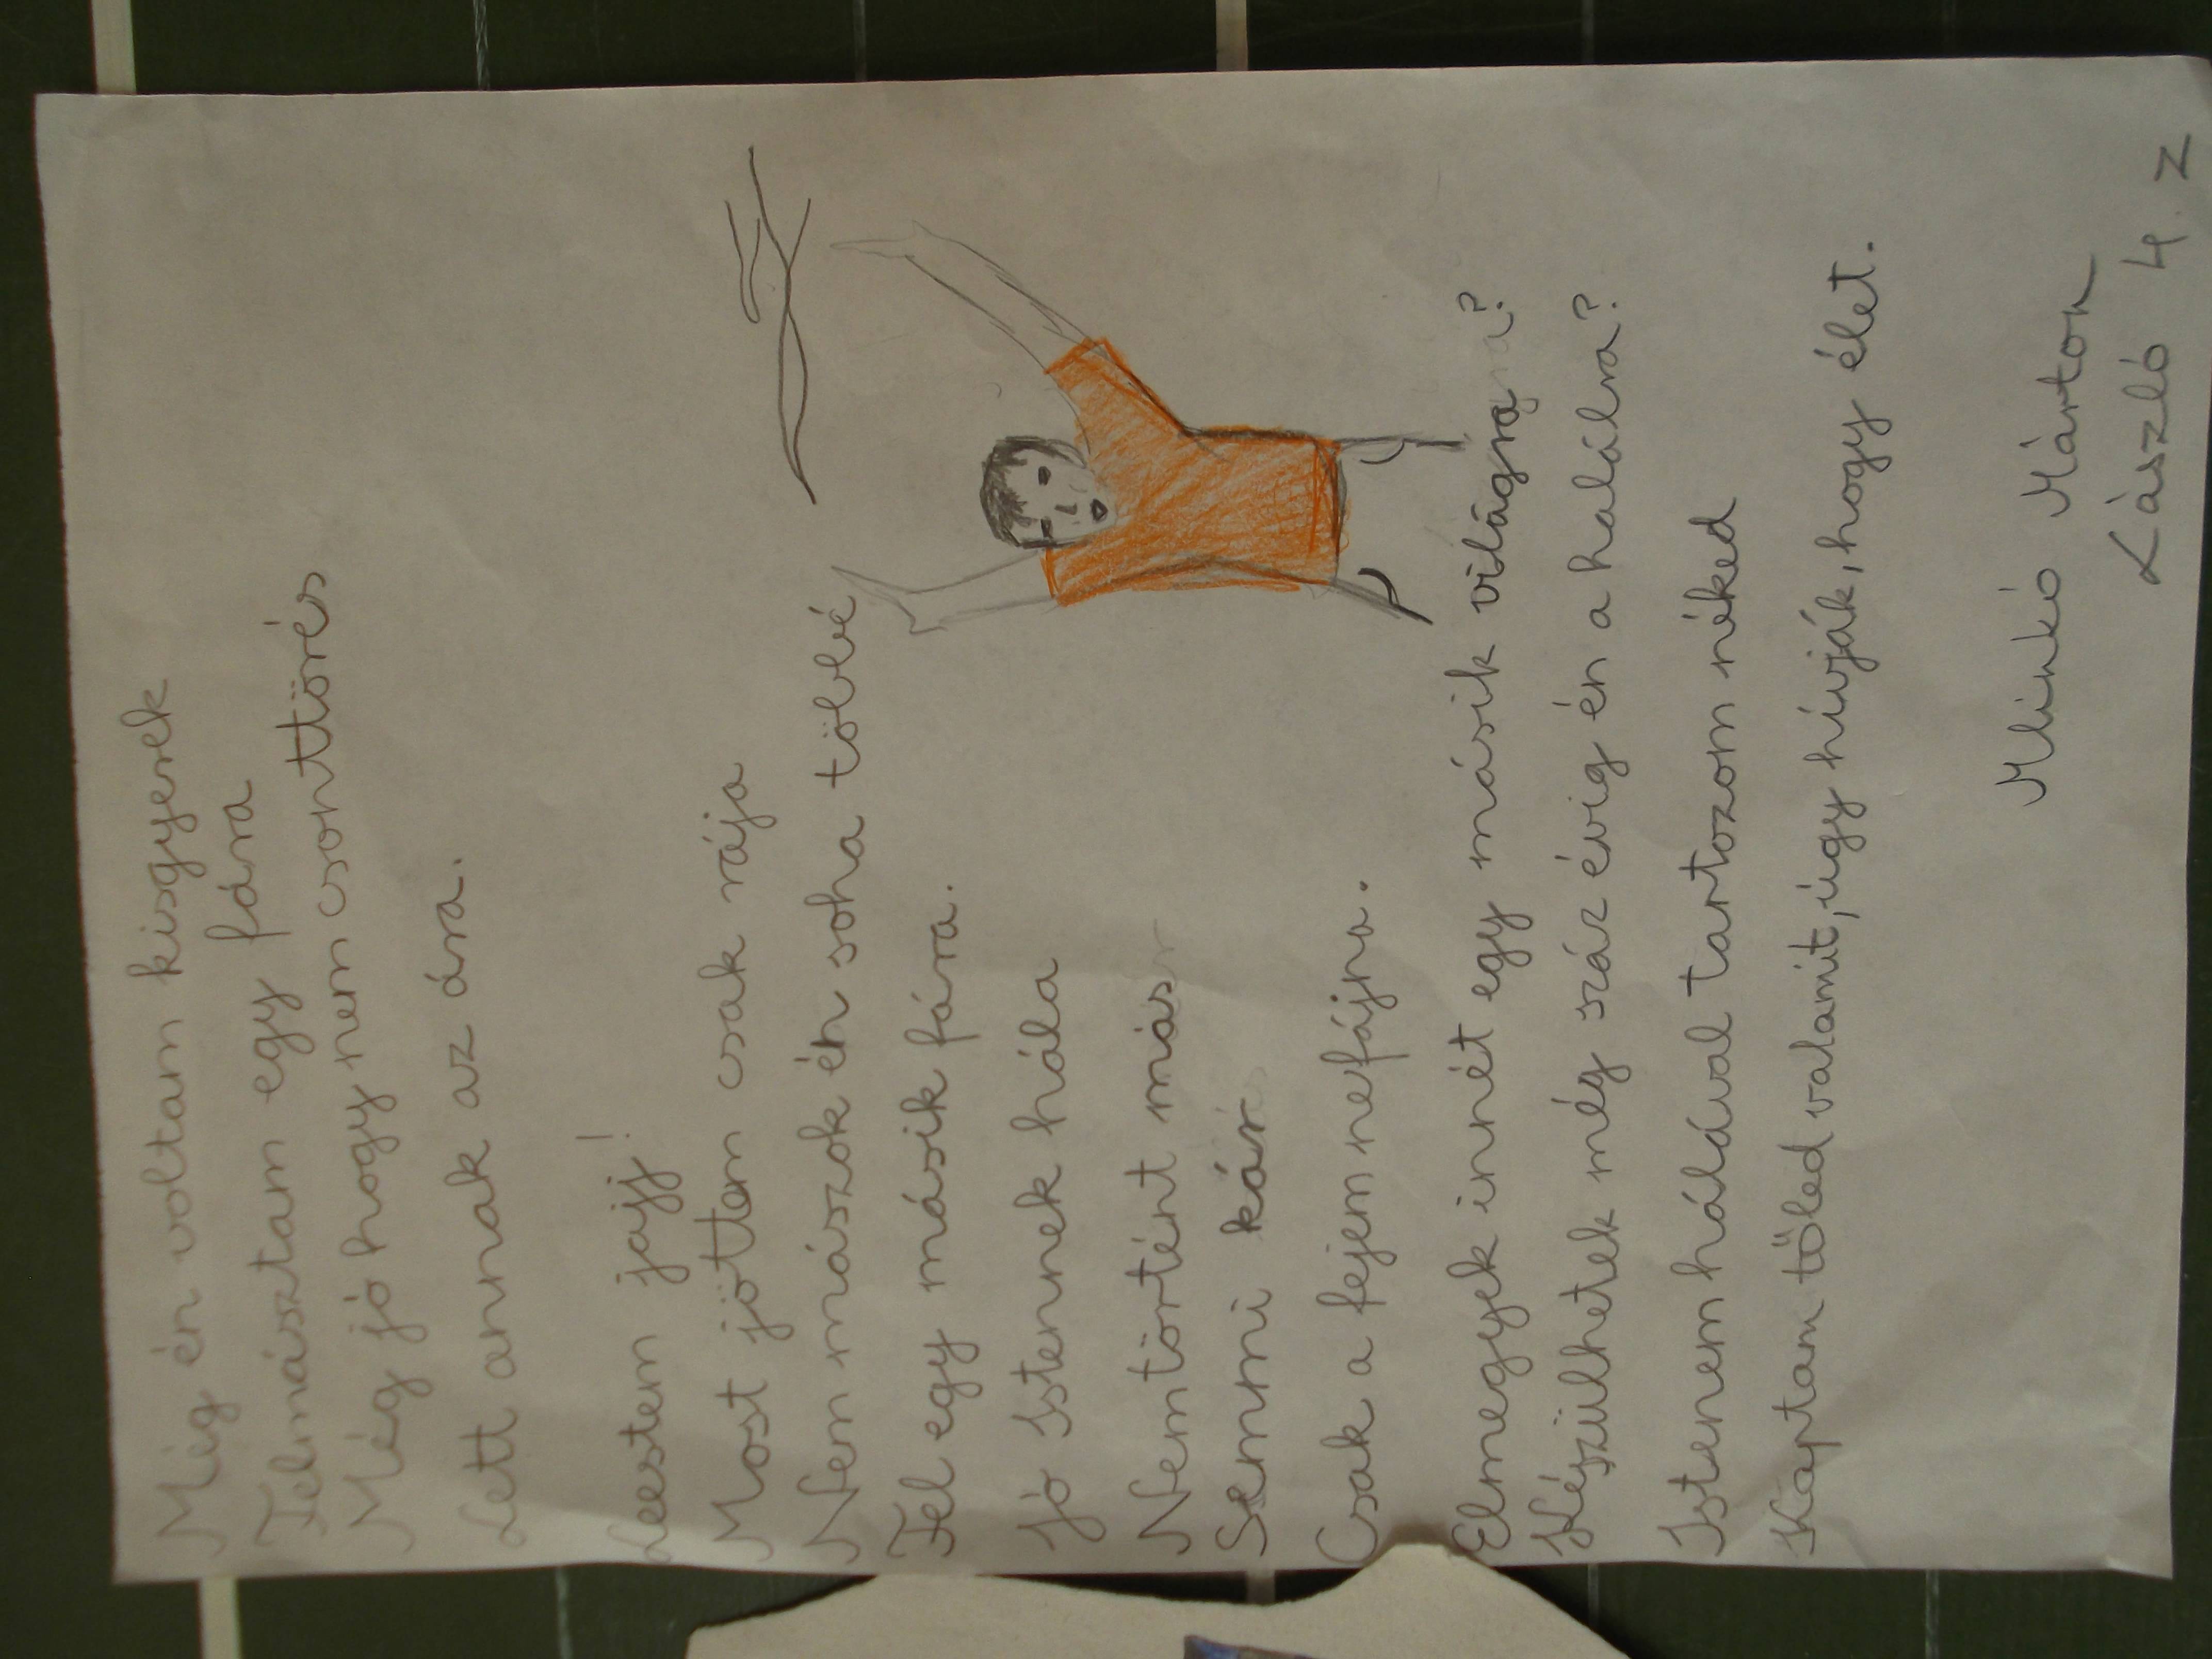 Még én voltam kisgyerek
Felmásztam egy fára
Még jó hogy nem csonttörés
Lett annak az ára.
Leestem jajj!
Most jöttem csak rája
Nem mászok én soha többé
Fel egy másik fára.
Jó Istennek hála
Nem történt más
Semmi kár
Csak a fejem nefájna.
Elmegyek innét egy másik világra?
Készülhetek még száz évig én a halálra?
Istenem hálával tartozom néked
Kaptam tőled valamit, úgy hívják, hogy élet.
Minkó Márton
László 4. Z